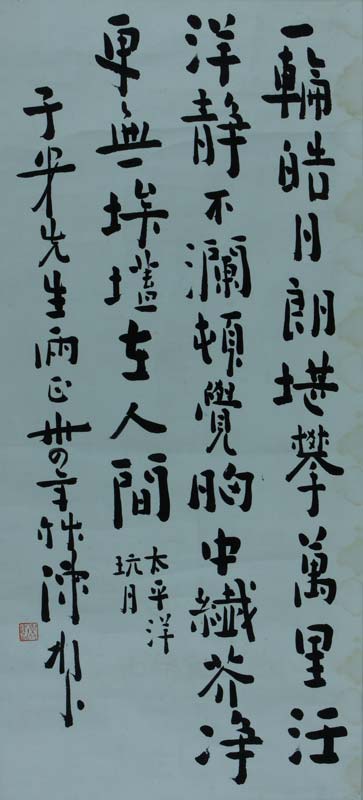 一輪皓月朗堪攀萬里汪
洋靜不瀾頓覺胸中纖芥净
更無埃壒在人間
太平洋
玩月
先生兩正卅四年秋陳樹人